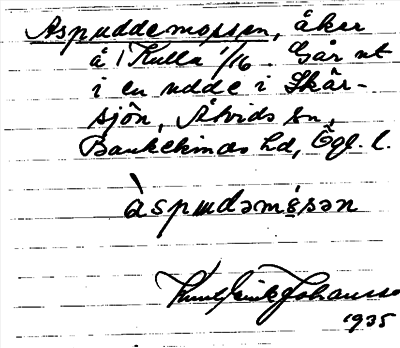 Aspuddemossen, åker
å 1 Kulla 1/16. Går ut
i en udde i Skär-
sjön, Åtvids sn,
Bankekinds hd, Ögl. l.
àspɯdəmósən
Johansson
1935